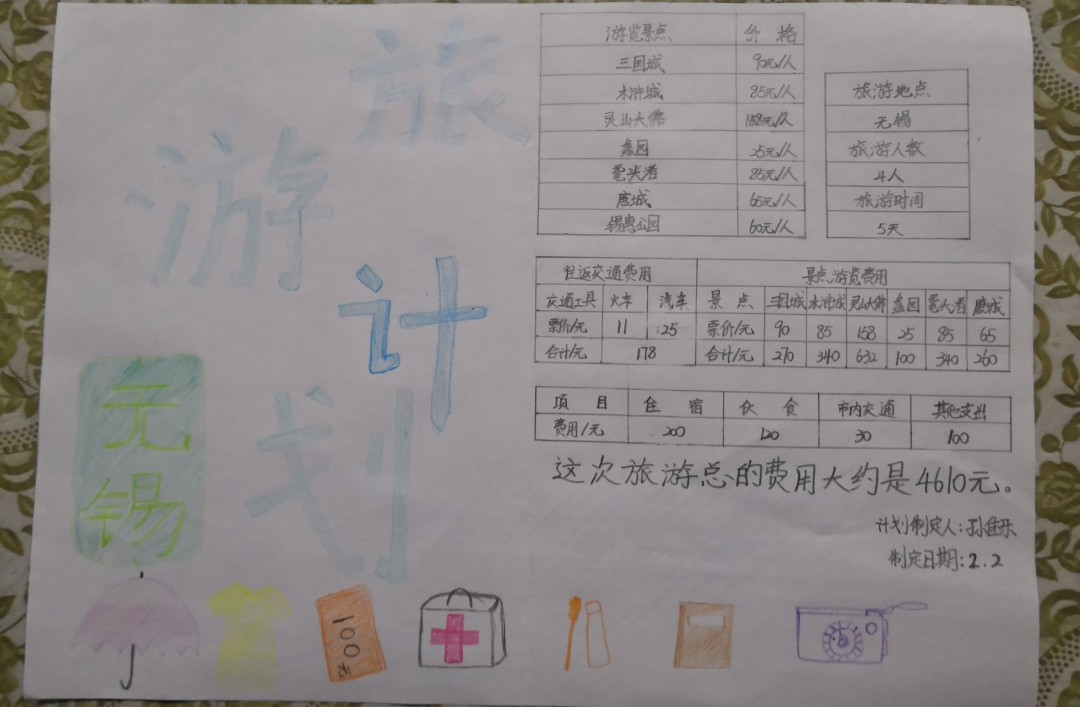 旅
游
计
划
无
锡
100
元
游览景点 价格
三国城 90元/人
水浒城 85元/人
灵山大佛 158元/人
蠡园 25元/人
鼋头渚 85元/人
唐城 65元/人
锡惠公园 60元/人
旅游地点
无锡
旅游人数
4人
旅游时间
5天
往返交通费用 景点游览费用
交通工具 火车 汽车 景点 三国城 水浒城 灵山大佛 蠡园 鼋头渚 唐城
票价/元 11 25 票价/元 90 85 158 25 85 65
合计/元 178 合计/元 270 340 632 100 340 260
项目 住宿 伙食 市内交通 其他支出
费用/元 200 120 30 100
这次旅游总的费用大约是4610元。
计划制定人:孙佳乐
制定日期:2.2